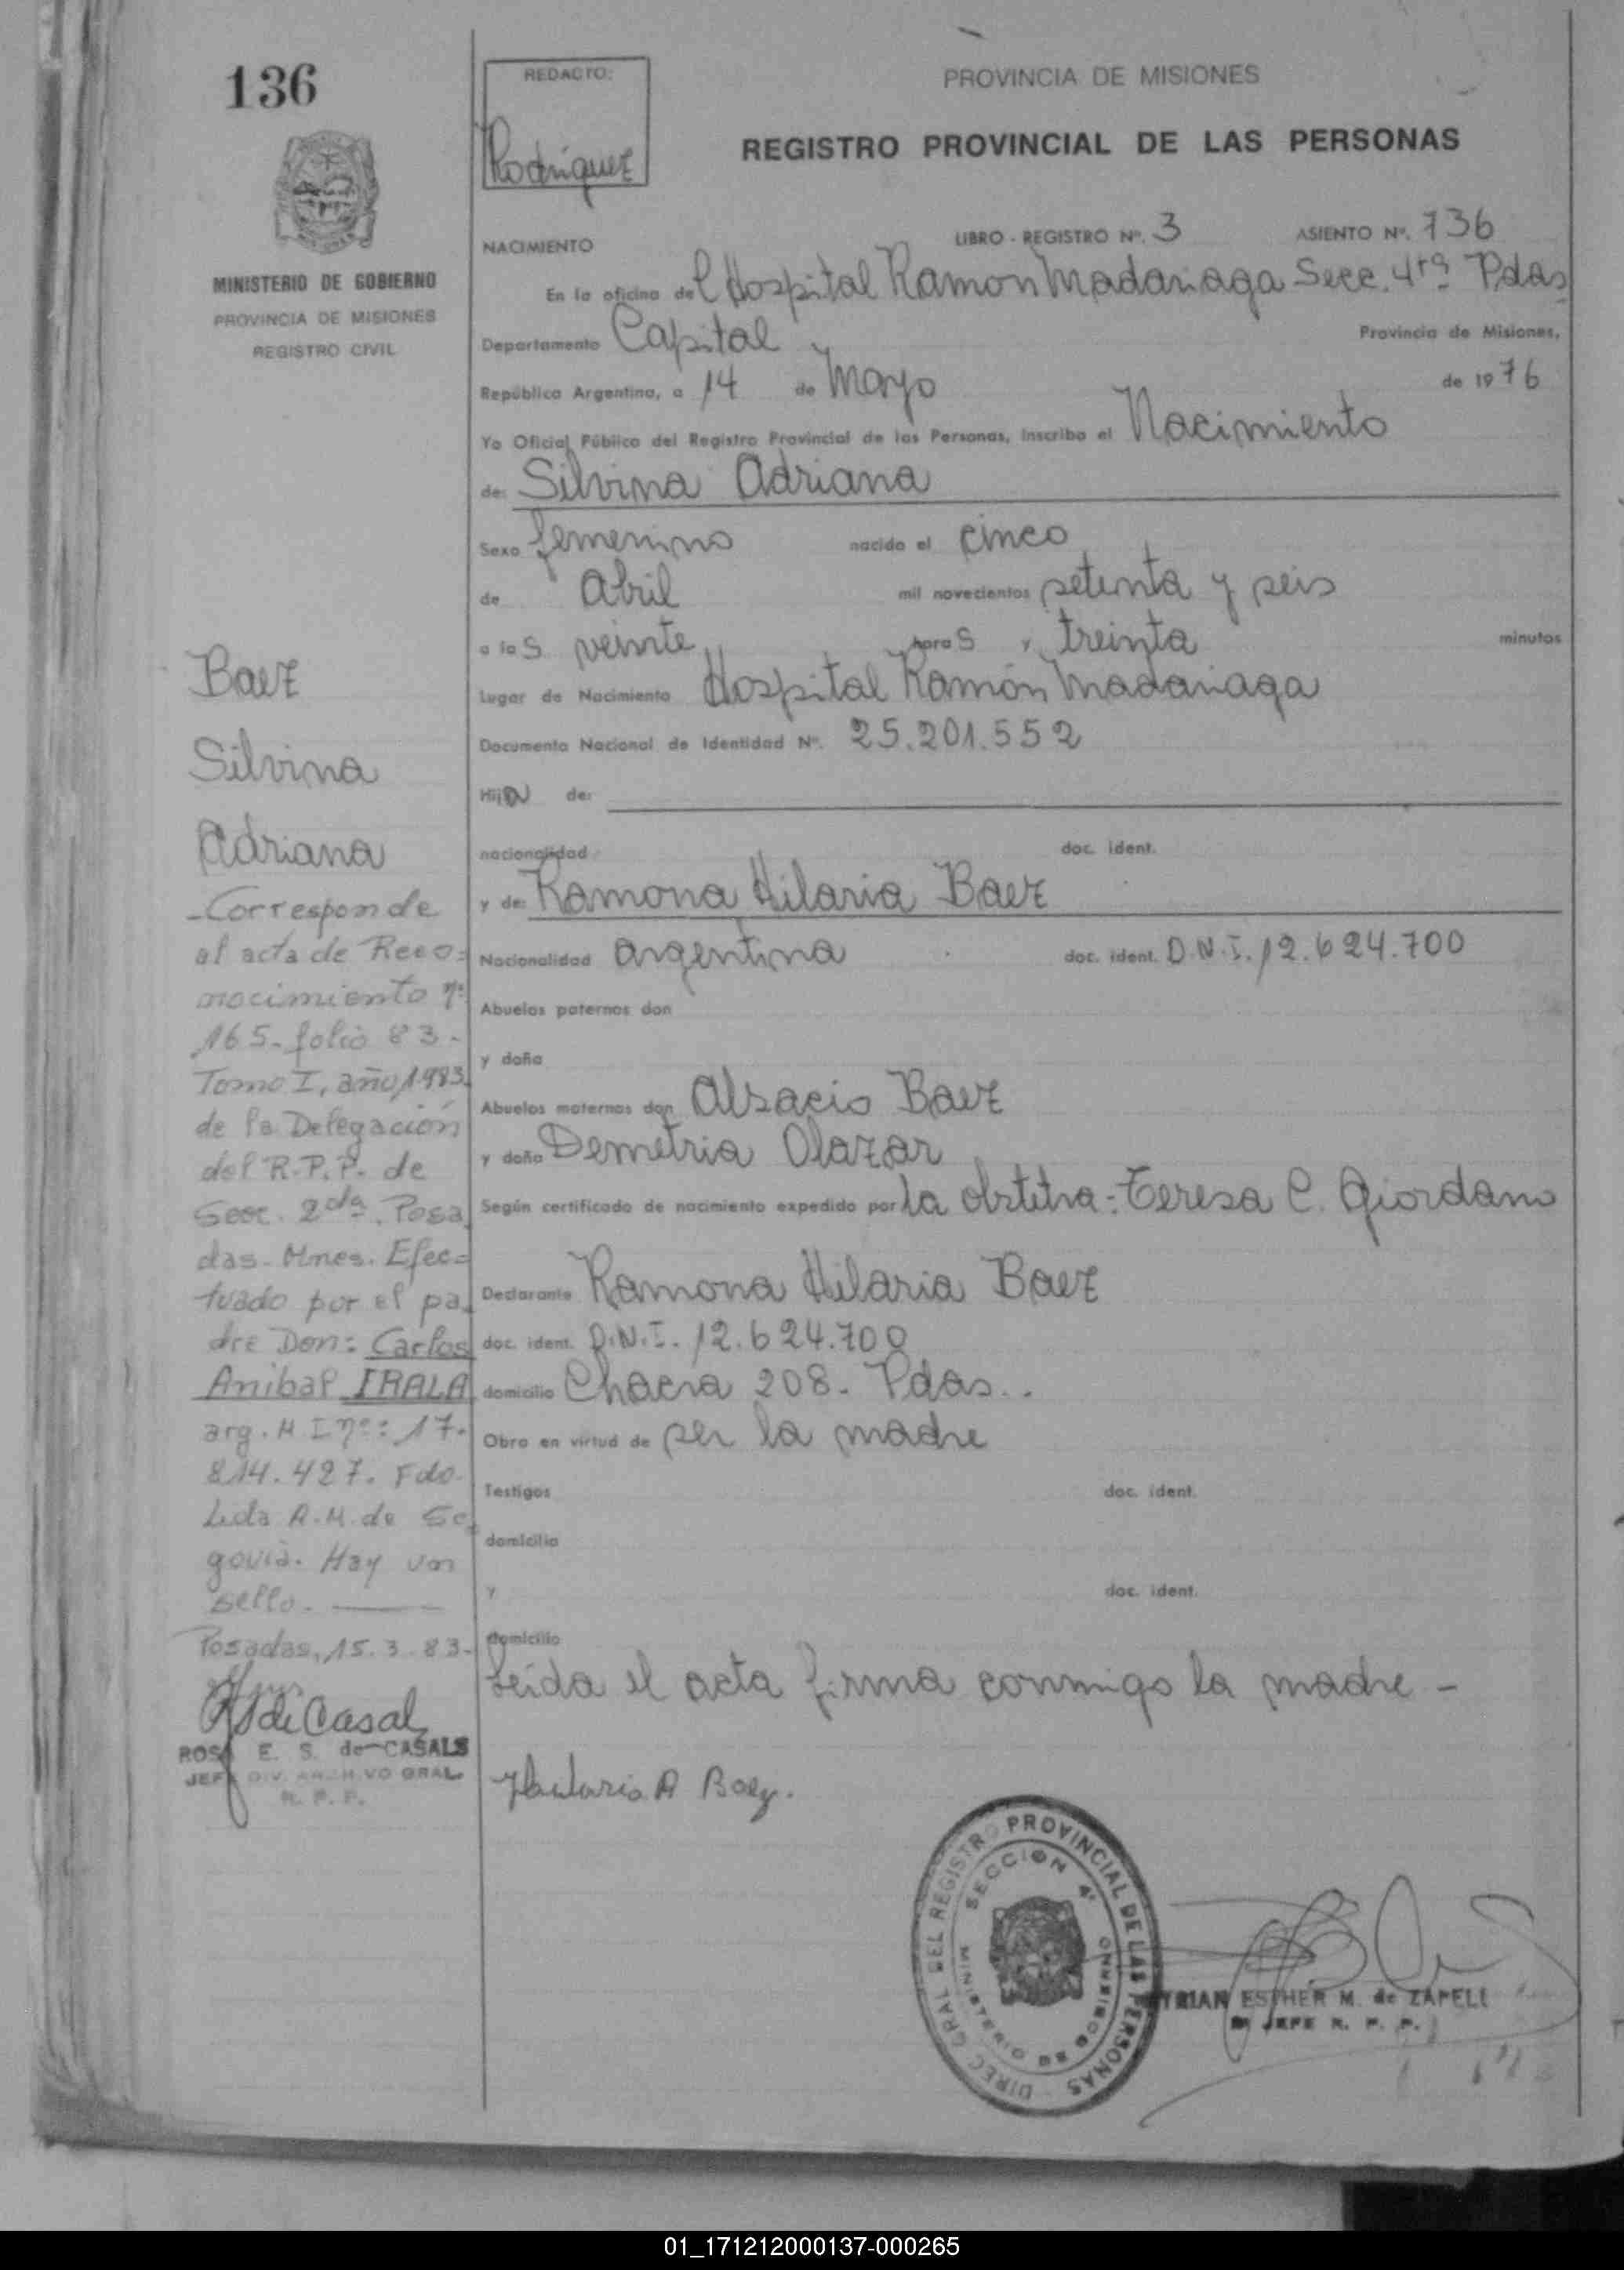 136
REDACTO:
Rodriguez
PROVINCIA DE MISIONES
REGISTRO PROVINCIAL DE LAS PERSONAS
MINISTERIO DE GOBIERNO
PROVINCIA DE MISIONES
REGISTRO CIVIL
NACIMIENTO LIBRO - REGISTRO Nº. 3 ASIENTO Nº. 136
En la oficina del Hospital Ramon Madariaga Secc. 4ra Pdas
Departamento Capital Provincia de Misiones,
República Argentina, a 14 de Mayo de 1976
Yo Oficial Público del Registro Provincial de las Personas, inscribo el Nacimiento
de: Silvina Adriana
Sexo femenino nacido el cinco
de Abril mil novecientos setenta y seis
a las veinte horas y treinta minutos
Lugar de Nacimiento Hospital Ramón Madariaga
Documento Nacional de Identidad Nº. 25.201.552
Hija de:
nacionalidad doc. ident.
y de: Ramona Hilaria Baez
Nacionalidad argentina doc. ident. D.N.I. 12.624.700
Abuelos paternos don
y doña
Abuelos maternos don Alsacio Baez
y doña Demetria Olazar
Según certificado de nacimiento expedido por la obstetra: Teresa C. Giordano
Declarante Ramona Hilaria Baez
doc. ident. D.N.I. 12.624.700
domicilio Chacra 208. Pdas..
Obro en virtud de ser la madre
Testigos doc. ident.
domicilio
y doc. ident.
domicilio
Leida el acta firma conmigo la madre -
Baez
Silvina
Adriana
-Corresponde
al acta de Reco=
nocimiento nº
165-folio 83-
Tomo I, año 1.983
de la Delegación
del R.P.P. de
Secc. 2da. Posa
das-Mnes. Efec=
tuado por el pa
dre Don: Carlos
Anibal IRALA
arg. M I nº: 17.
814.427. Fdo.
Lida A.M. de Se
govia. Hay un
sello.
Posadas, 15.3.83-
de Casals
ROSA E. S. de CASALS
JEFA DIV. ARCHIVO GRAL.
R. P. P.
Hilaria R Baez.
DIREC GRAL DEL REGISTRO PROVINCIAL DE LAS PERSONAS
SECCION 4ª
MINISTERIO DE GOBIERNO
ESTHER M. de ZAPELI
JEFE R. P. P.
01_171212000137-000265